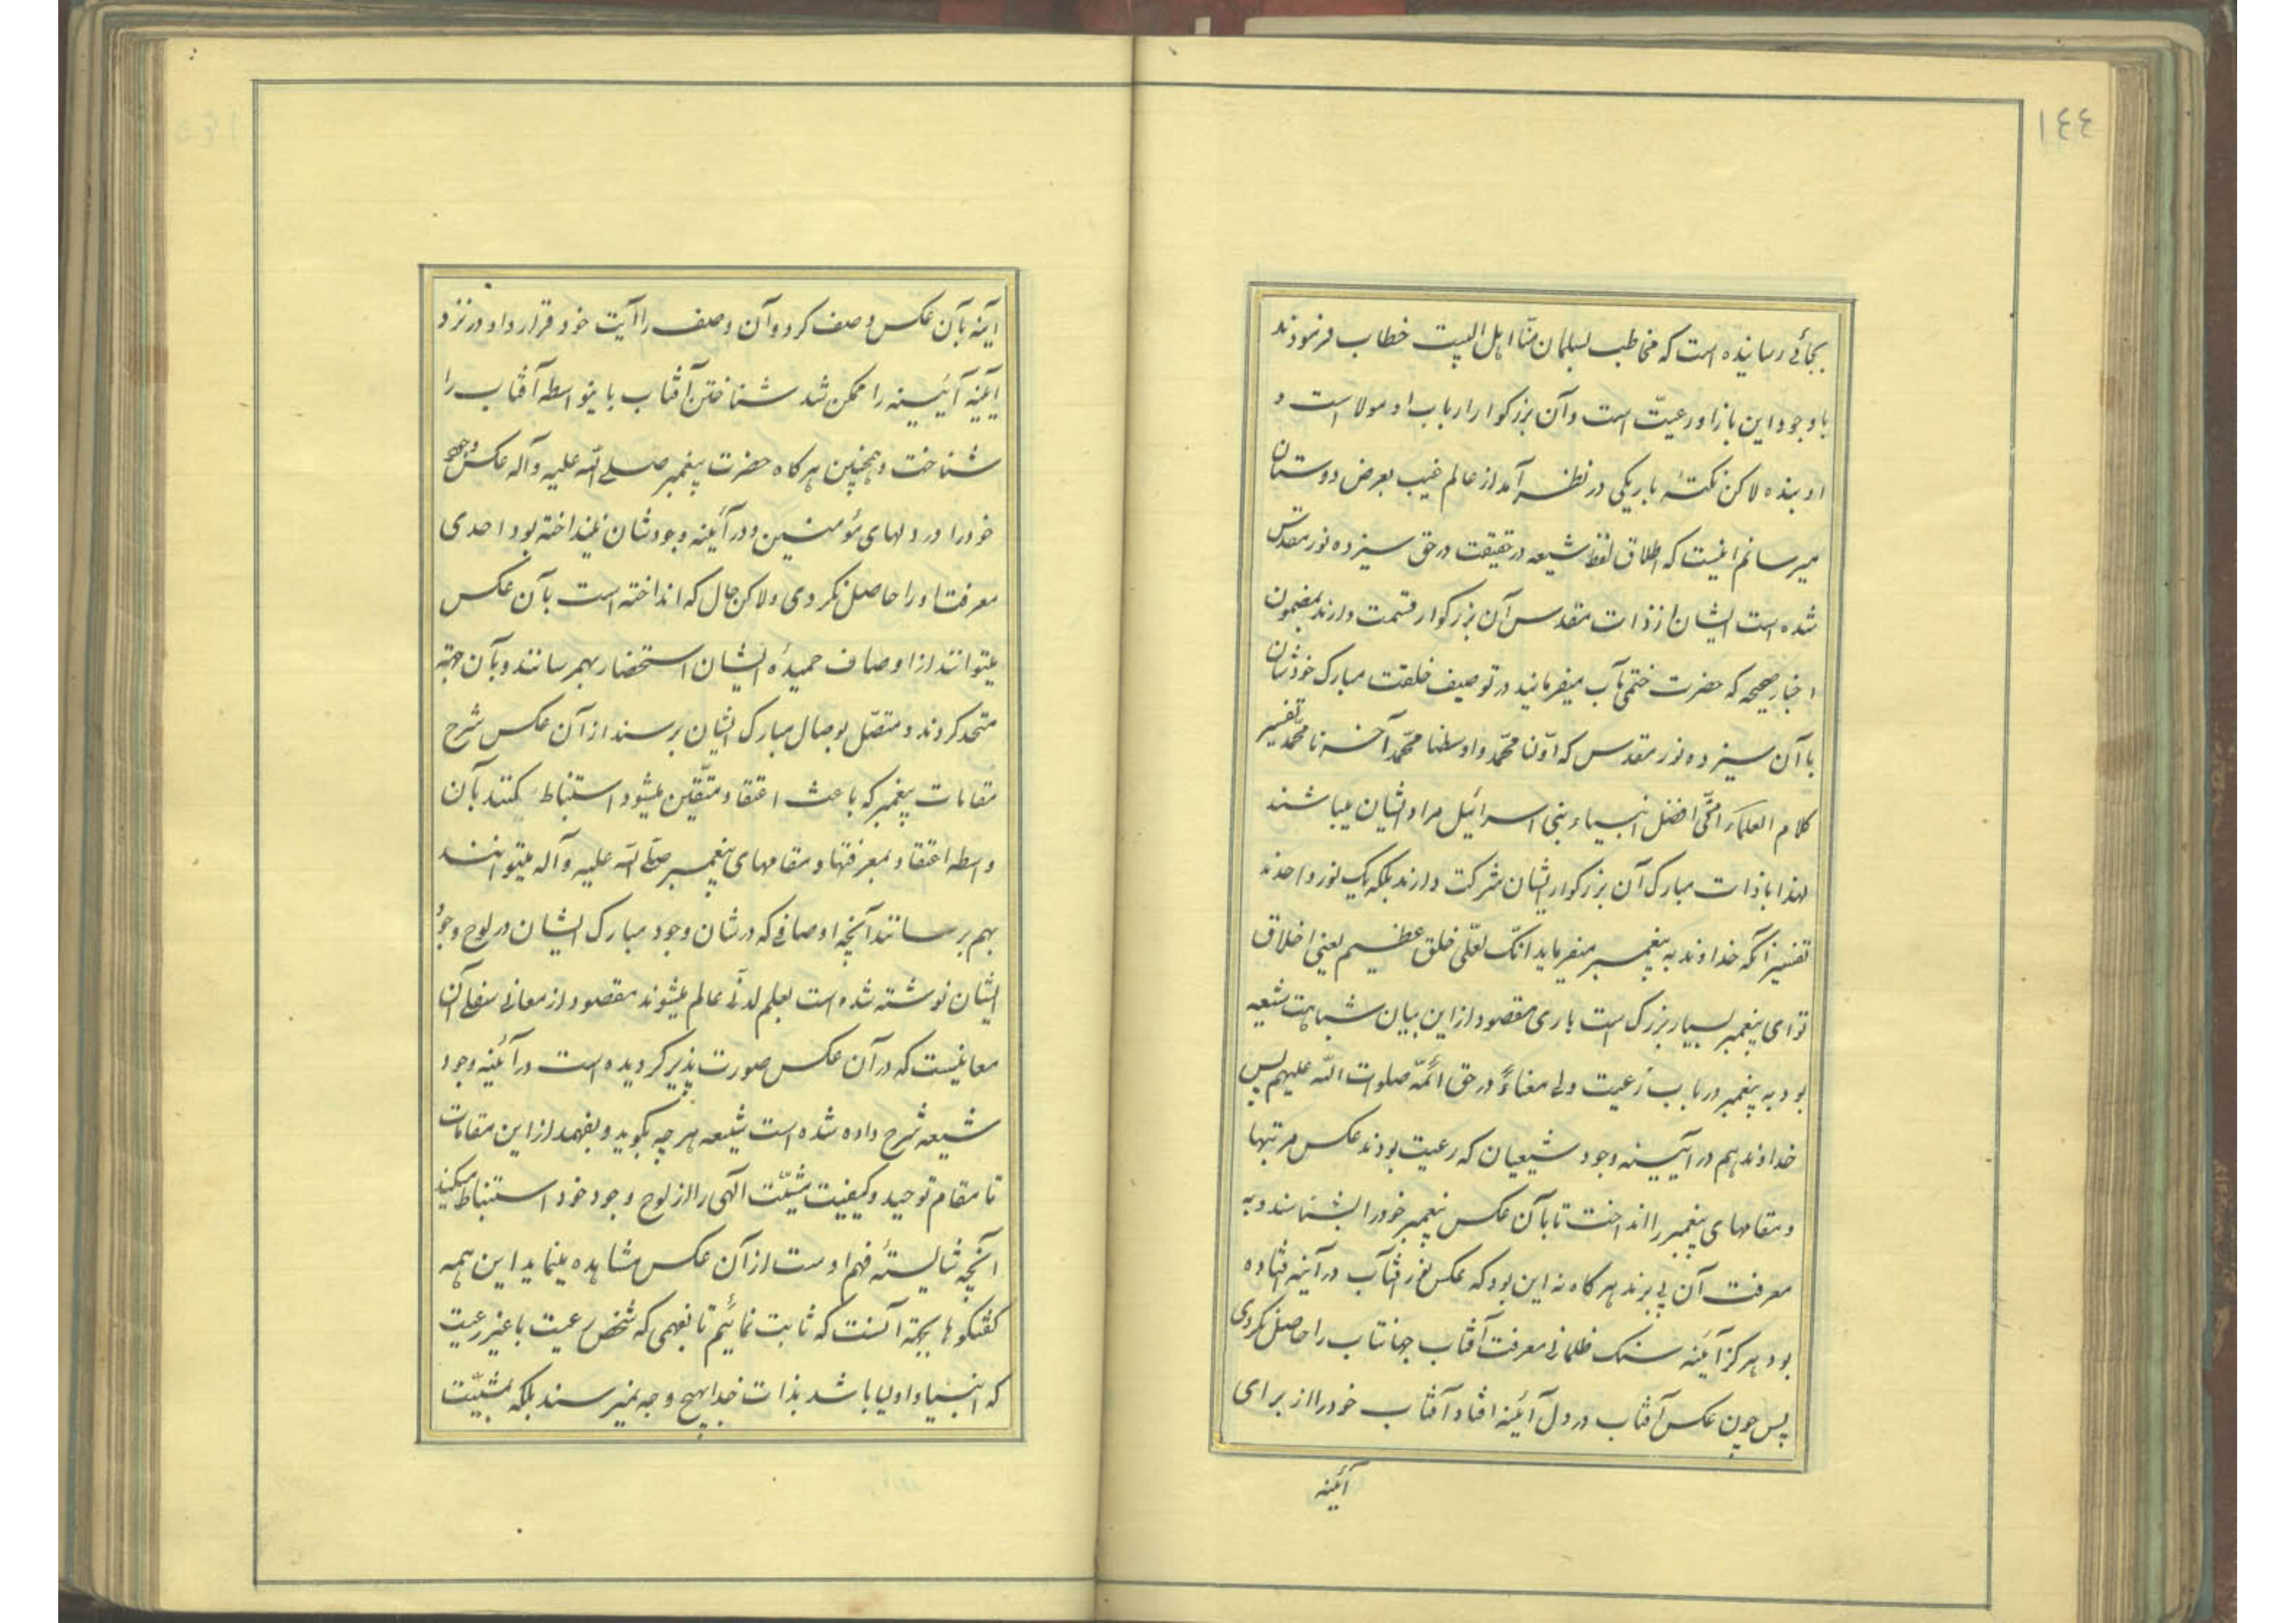 ١٤٤
بجائی رسانیده است که مخاطب بسلمان منّا اهل البیت خطاب فرمودند
باوجود این باز او رعیّت است وآن بزرکوار ارباب او مولا است و
او بنده لاکن نکتهٔ باریکی در نظر آمد از عالم غیب بعرض دوستان
میرسانم اینست که اطلاق لفظ شیعه در حقیقت در حق سیزده نور مقدّس
شده است ایشان از ذات مقدس آن بزرکوار قسمت دارند بمضمون
اخبار صحیحه که حضرت ختمی مآب میفرمایند در توصیف خلقت مبارک خودشان
با آن سیزده نور مقدس که اوّلنا محمّد واوسطنا محمّد آخرنا محمّد تفسیر
کلام العلماء امّتی افضل انبیاء بنی اسرائیل مراد ایشان میباشند
لهذا باذات مبارک آن بزرکوار ایشان شرکت دارند بلکه یک نور واحدند
تفسیر آنکه خداوند به پیغمبر میفرماید انّک لعلی خلق عظیم یعنی اخلاق
تو ای پیغمبر بسیار بزرک است باری مقصود از این بیان شباهت شیعه
بود به پیغمبر در باب رعیت ولی معناءً در حق ائمّه صلوات اللّه علیهم پس
خداوند هم در آیینه وجود شیعیان که رعیت بودند عکس مرتبها
و مقامهای پیغمبر را انداخت تا بآن عکس پیغمبر خود را بشناسند و به
معرفت آن پی برند هر کاه نه این بود که عکس نور افتاب در آینه فتاده
بود هرکز آئینه سنک ظلمانی معرفت آفتاب جهانتاب را حاصل نکردی
پس چون عکس آفتاب در دل آئینه افتاد آفتاب خود را از برای
آئینه
آینه بآن عکس وصف کرد و آن وصف را آیت خود قرار داد در نزد
آینه آئینه را ممکن شد شناختن آفتاب باینواسطه آفتاب را
شناخت و همچنین هرکاه حضرت پیغمبر صلی اللّه علیه وآله عکس وجه
خود را در دلهای مؤمنین و در آئینه وجودشان نینداخته بود احدی
معرفت او را حاصل نکردی و لاکن حال که انداخته است بآن عکس
میتوانند از اوصاف حمیدهٔ ایشان استحضار بهمرسانند و بآن جهة
متحد کردند و متصّل بوصال مبارک ایشان برسند از آن عکس شرح
مقامات پیغمبر که باعث اعتقاد متّقین میشود استنباط کنند بآن
واسطه اعتقاد بمعرفتها و مقامهای پیغمبر صلّی اللّه علیه وآله میتوانند
بهم برسانند آنچه اوصافی که در شان وجود مبارک ایشان در لوح وجود
ایشان نوشته شده است بعلم لدنّی عالم میشوند مقصود از معانی سفلی آن
معانیست که در آن عکس صورت پذیر کردیده است در آئینه وجود
شیعه شرح داده شده است شیعه هر چه بکوید و بفهمد از این مقامات
تا مقام توحید و کیفیت مشیّت الهی را از لوح وجود خود استنباط میکند
آنچه شایستهٔ فهم اوست از آن عکس مشاهده مینماید این همه
کفتکوها بجهة آنست که ثابت نمائیم تا بفهمی که شخص رعیت با غیر رعیت
که انبیا و اولیا باشد بذات خدا بهیچ وجه نمیرسند بلکه بمشیّت